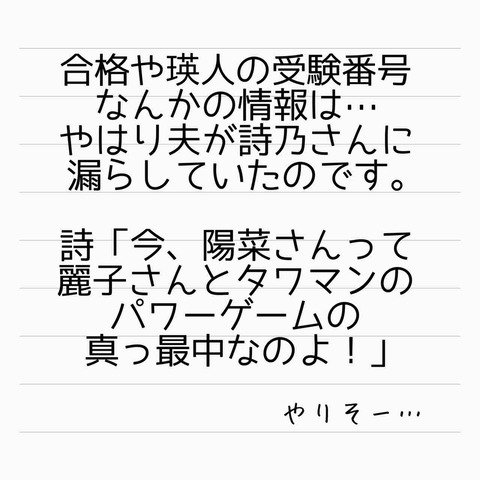 合格や瑛人の受験番号
なんかの情報は…
やはり夫が詩乃さんに
漏らしていたのです。
詩「今、陽菜さんって
麗子さんとタワマンの
パワーゲームの
真っ最中なのよ！」
やりそー…